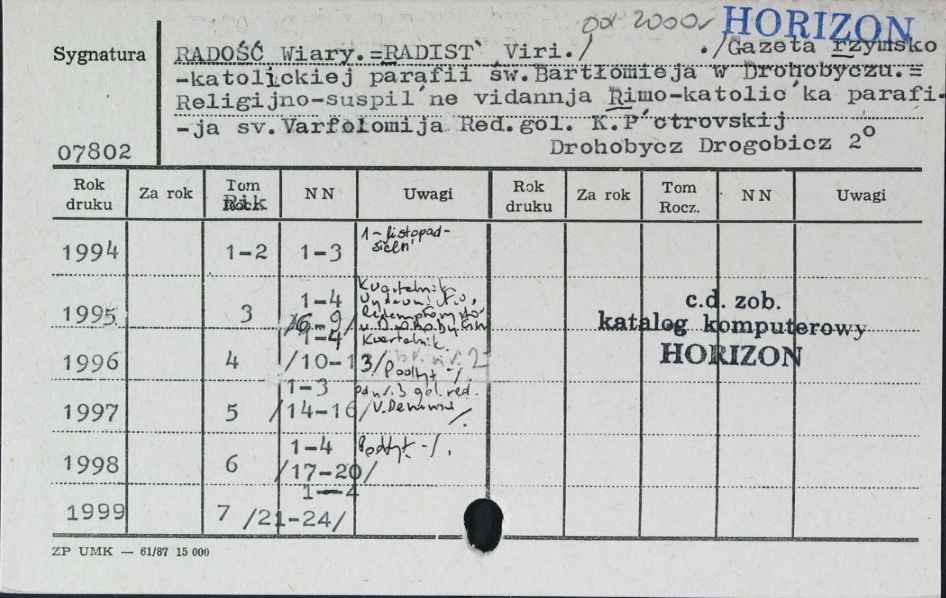 od 2000 HORIZON
Sygnatura
RADOŚĆ Wiary.=RADIST` Viri./ ./Gazeta rzymsko
-katolickiej parafii św.Bartłomieja w Drohobyczu.=
Religijno-suspil´ne vidannja Rimo-katolic´ka parafi-
-ja sv.Varfolomija Red.gol. K.P´otrovskij
07802
Drohobycz Drogobicz 2°
Rok druku Za rok Tom Rik NN Uwagi Rok druku Za rok Tom Rocz. NN Uwagi
1994 1-2 1-3 1-listopad-
1995 3 1-4 Kwartalnik
/6-9/
1996 4 1-4 Kwartalnik.
/10-13/ Podtyt -/.
1997 5 1-3 od nr 3 gol. red.
/14-16/
1998 6 1-4 Podtyt -/.
/17-20/
1999 7 1-4
/21-24/
c.d. zob.
katalog komputerowy
HORIZON
ZP UMK — 61/87 15 000